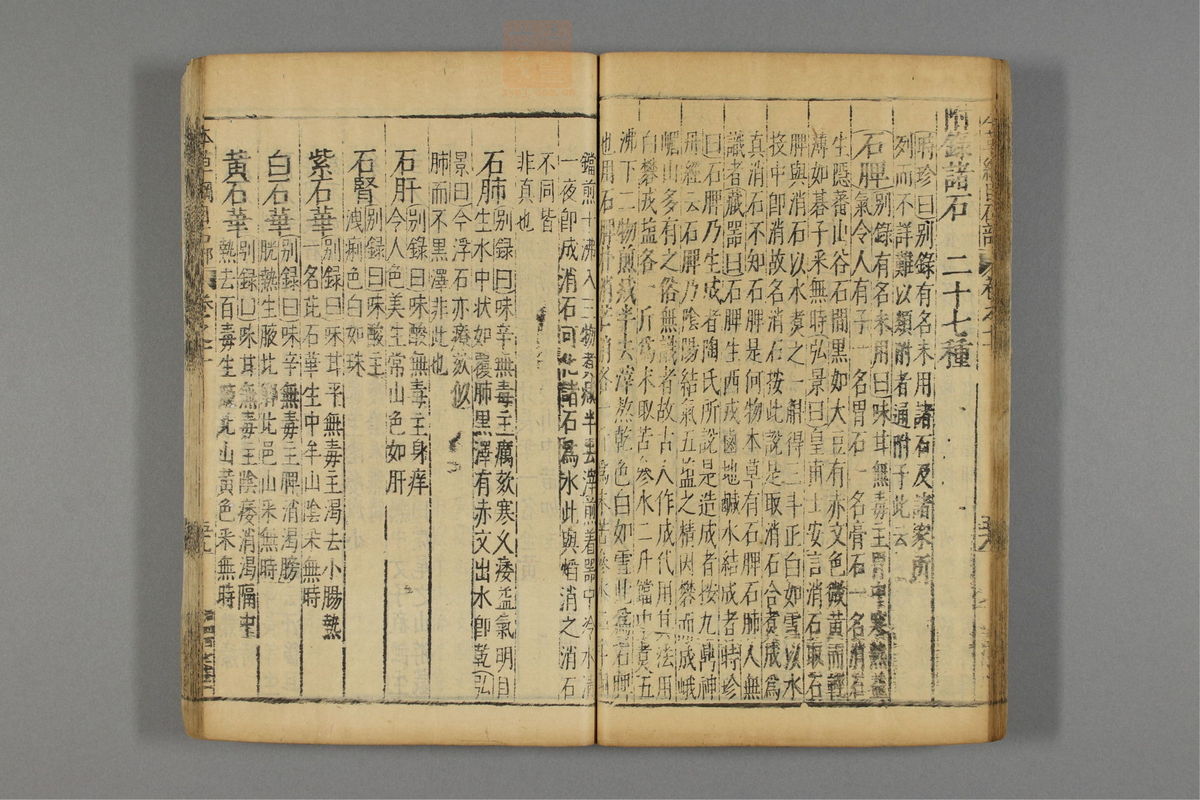 附錄諸石二十七種
時珍曰別錄有名未用諸石及諸家所
列而不詳難以類附者通附于此云
石脾別錄有名未用曰味甘無毒主胃中寒熱益
氣令人有子一名胃石一名膏石一名消石
生隱蕃山谷石間黑如大豆有赤文色微黃而輕
薄如碁子采無時弘景曰皇甫士安言消石取石
脾與消石以水煮之一斛得三斗正白如雪以水
投中即消故名消石按此說是取消石合煮成為
真消石不知石脾是何物本草有石脾石肺人無
識者藏器曰石脾生西戎鹵地鹹水結成者時珍
曰石脾乃生成者陶氏所說是造成者按九鼎神
丹經云石脾乃陰陽結氣五鹽之精因礬而成峨
嵋山多有之俗無識者故古人作成代用其法用
白礬戎鹽各一斤為末取苦參水二升鐺中煮五
沸下二物煎減半去滓熬乾色白如雪此為石脾
也用石脾
鐺煎十沸入三物煮減半去滓煎着器中冷水
一夜即成消石河北諸石為氷此與焰消之消石
不同皆
非真也
石肺別錄曰味辛無毒主癘欬寒久痿益氣明目
生水中状如覆肺黑澤有赤文出水即乾弘
景曰今浮石亦療欬似
肺而不黑澤非此也
石肝別錄曰味酸無毒主身癢
令人色美生常山色如肝
石腎別錄曰味酸主
洩痢色白如珠
紫石華別錄曰味甘平無毒主渴去小腸熱
一名茈石華生中牟山陰采無時
白石華別錄曰味辛無毒主脾消渴膀
胱熱生腋北鄉北邑山采無時
黃石華別錄曰味甘無毒主陰痿消渴隔中
熱去百毒生腋北山黃色采無時